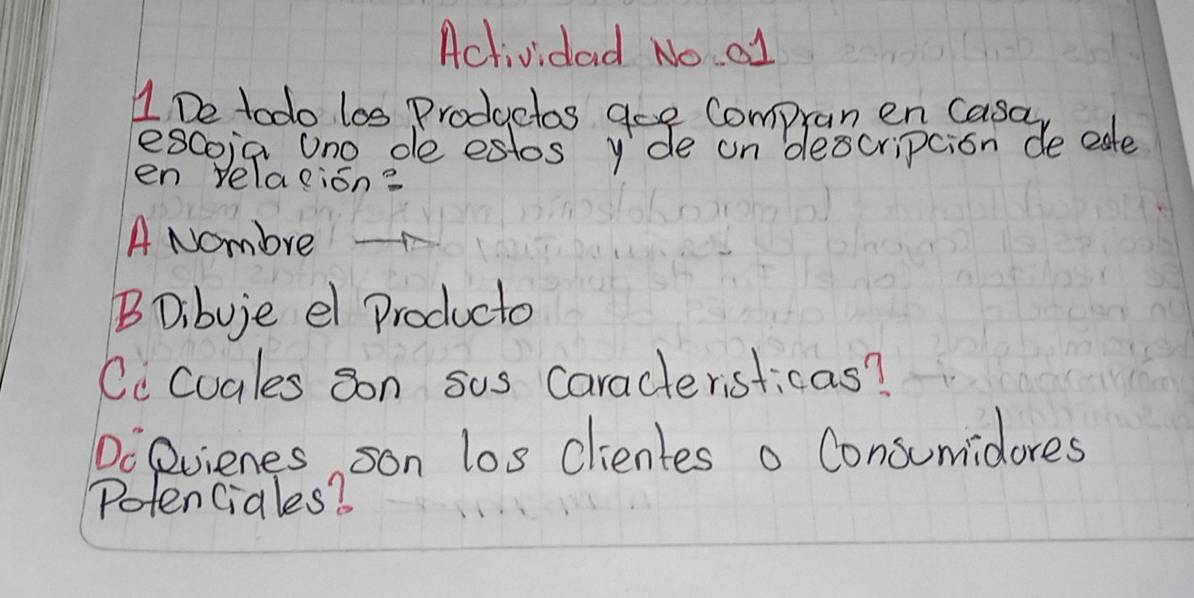 Actividad No.01
1 De todo los Productos que compran en casa,
escoja uno de estos y de un descripción de este
en relación:
A Nombre →
B Dibuje el Producto
C¿ Cuales son sus caracteristicas?
D¿ Quienes son los clientes o Consumidores
Potenciales?